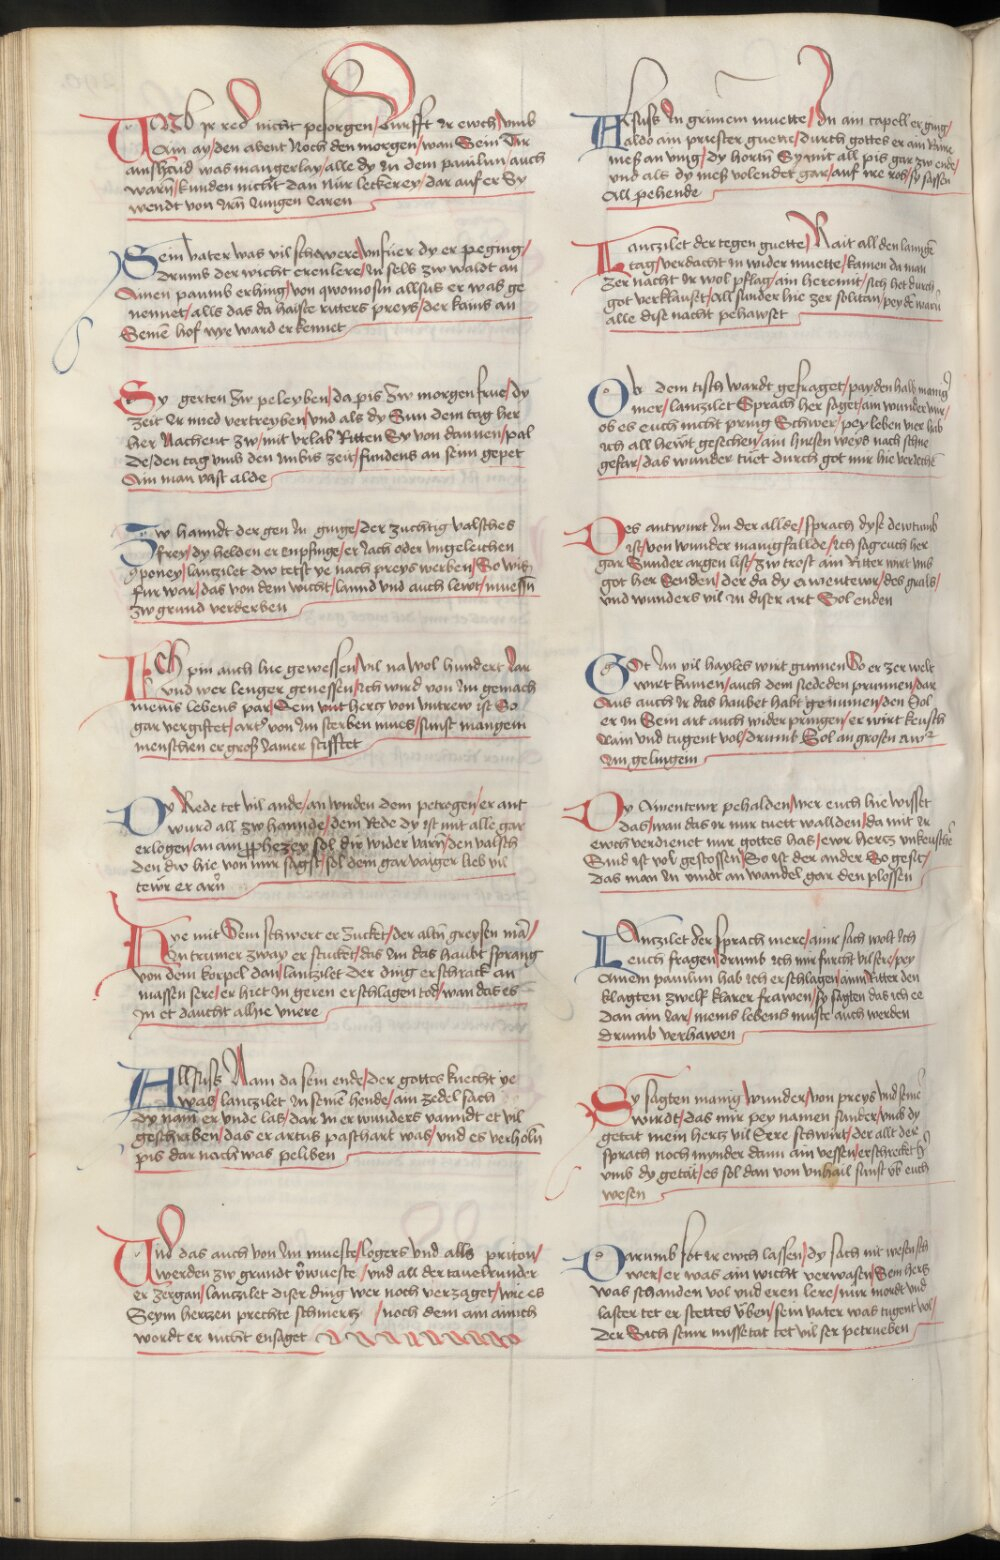 Vmb ir red nicht pesorgen / Durfft Ir ewch / vmb
Ain ay / den abent Noch den morgen / wan Sein Tir
amshewd was mangerlay / alle dy In dem pauilun / auch
warn / kunden nicht dan Nur leckerey / dar auf er Sy
wendt von Irn Jungen Jaren
Sein vater was vil schewere / vnfuer dy er peging /
Drums der wicht erenlere / In fels zw waldt an
Ainen paumb erhing / von qwomosin allsus er was ge
nennet / alls das da haiste ritters preys / der kains an
Seinē hof nye ward erkennet
Sy gerten Zw peleyben / da pis Zw morgen frue / dy
zeit Ir mied vertreyben / vnd als dy Sun dem tag her
her Nachent zw / mit vrlab Ritten Sy von dannen / pal
de / den tag vmb den Imbis zeit / fundens an seinn gepet
Ain man vast alde
Zw hanndt der gen In ginge / der zuchtig valsches
frey / dy helden er enpfinge / er Jach oder vngeleichen
poney / lantzilet dw tetst ye nach preys werben / So wis
fur war / das von dem wicht / lannd vnd auch lewt / muessn
zw grund verderben
ICh pin auch hie gewessen / vil na wol hundert Jar
vnd wer lenger genessen / ich wurd von Im gemach
meins lebens par / Sein vnt herg von vntrew ist So
gar vergiftet / art von Im sterben mues / sunst mangem
menschen er groß Jamer stifftet
Dy Rede tet vil ande / an wirden dem petrogen / er ant
wurd all zw hannde / dem Rede dy ist mit alle gar
erlogen / an aim prophezey sol dir wider varn / den valsch
den dw hie von mir sagst / sol dem gar vaiger lieb vil
tewr er arn
Hye mit Sein schwert er Zucket / der altn greysen mā /
In trumer zway er stucket / das Im das haubt sprang
von dem korpel dan / lantzilet der ding erschrack an
massen sere / er hiet In geren erschlagen tod / wan das es
In et daucht alhie vnere
Allsuss Nam da sein ende / der gottes knecht ye
was / lantzilet In seinē hende / ain zedel sach
dy nam er vnde las / dar In er wunders vanndt et vil
geschriben / das er artus pasthart was / vnd es verholn
pis dar nach was peliben
Vnd das auch von Im mueste / logers vnd alls priton /
werden zw grundt vwueste / vnd all der tauelrunder
er zergan / lantzilet diser ding wer noch verzaget / wie es
Seym hertzen prechte schmertz / noch dem ain ainich
wordt er nicht ensaget
Alsuss In grimem muette / In ain capell er ging /
aldo ain priester guette / durch gottes er am Raine
mess an ving / dy hortn Sy mit all pis gar zw ende /
vnd als dy mess volendet gar / auf ire ros / sy sassen
All pehende
Lantzilet der tegen guette / Rait all den lanngē
tag / verdacht in wider muette / kamen da man
zer nacht Ir wol pflag / ain heremit / sich het durch
got verkaufft / all sunder hie zer solitan / pey dē warn
alle dise nacht pehawset
Ob dem tisch wardt gefraget / pay den halb manig
mer / lantzilet Sprach her saget / ain wunder mir /
ob es euch nicht pring Schwer / pey leben vier hab
ich all hewt gesechen / ain hiersen weys nach schne
gefar / das wunder tuet durch got mir hie veriechē
Des antwurt Im der allde / sprach dyse dewtunb
ist / von wunder manigfallde / ich sag euch her
gar Sunder argen list / zw trost ain Ritter wirt vns
got her Senden / der da dy awentewr / des grails /
vnd wunders vil In diser art Sol enden
Got Im vil hayles wirt gunnen / So er zer welt
wirt kumen / auch dem siededen prunnen / dar
Aus auch Ir das haubet habt genumen / den Sol
er In Sein art auch wider pringen / er wirt keusch
Rain vnd tugent vol / drumb Sol an grosen aw
Im gelingem
Dy Awentewr pehalden / wer euch hie wisset
das / wan das ir nur tuett wallden / da mit Ir
ewch verdienet nur gottes has / ewr hertz vnkeusche
Sind ist vol gestossen / So ist der ander So gesit /
das man In vindt an wandel gar den plossen
Lantzilet der sprach mere / ainr sach wolt ich
euch fragen / drumb ich mir furcht vil sere / pey
Ainem pauilun hab ich erschlagen / ainn Ritter den
klagten zwelf klarer frawen / sy sagten das ich ee
dan ain Jar / meins lebens muste auch werden
drumb verhawen
Sy sagten manig wunder / von preys vnd seinē
wirdt / das mir pey namen sunder / vmb dy
getat mein hertz vil Sere schwirt / der allt der
sprach noch mynder dann ain vessen / erschrecket Ir
vmb dy getat / es sol dan von vnhail sunst vb euch
wesen
Darumb sot ir ewch lassen / dy sach nit wesen sch
wer / er was ain wicht verwasen / Sein hertz
was schanden vol vnd eren lere / nur mordt vnd
laster tet er stettes vben / sein vater was tugent vol /
der Sich seinr missetat tet vil ser petrueben